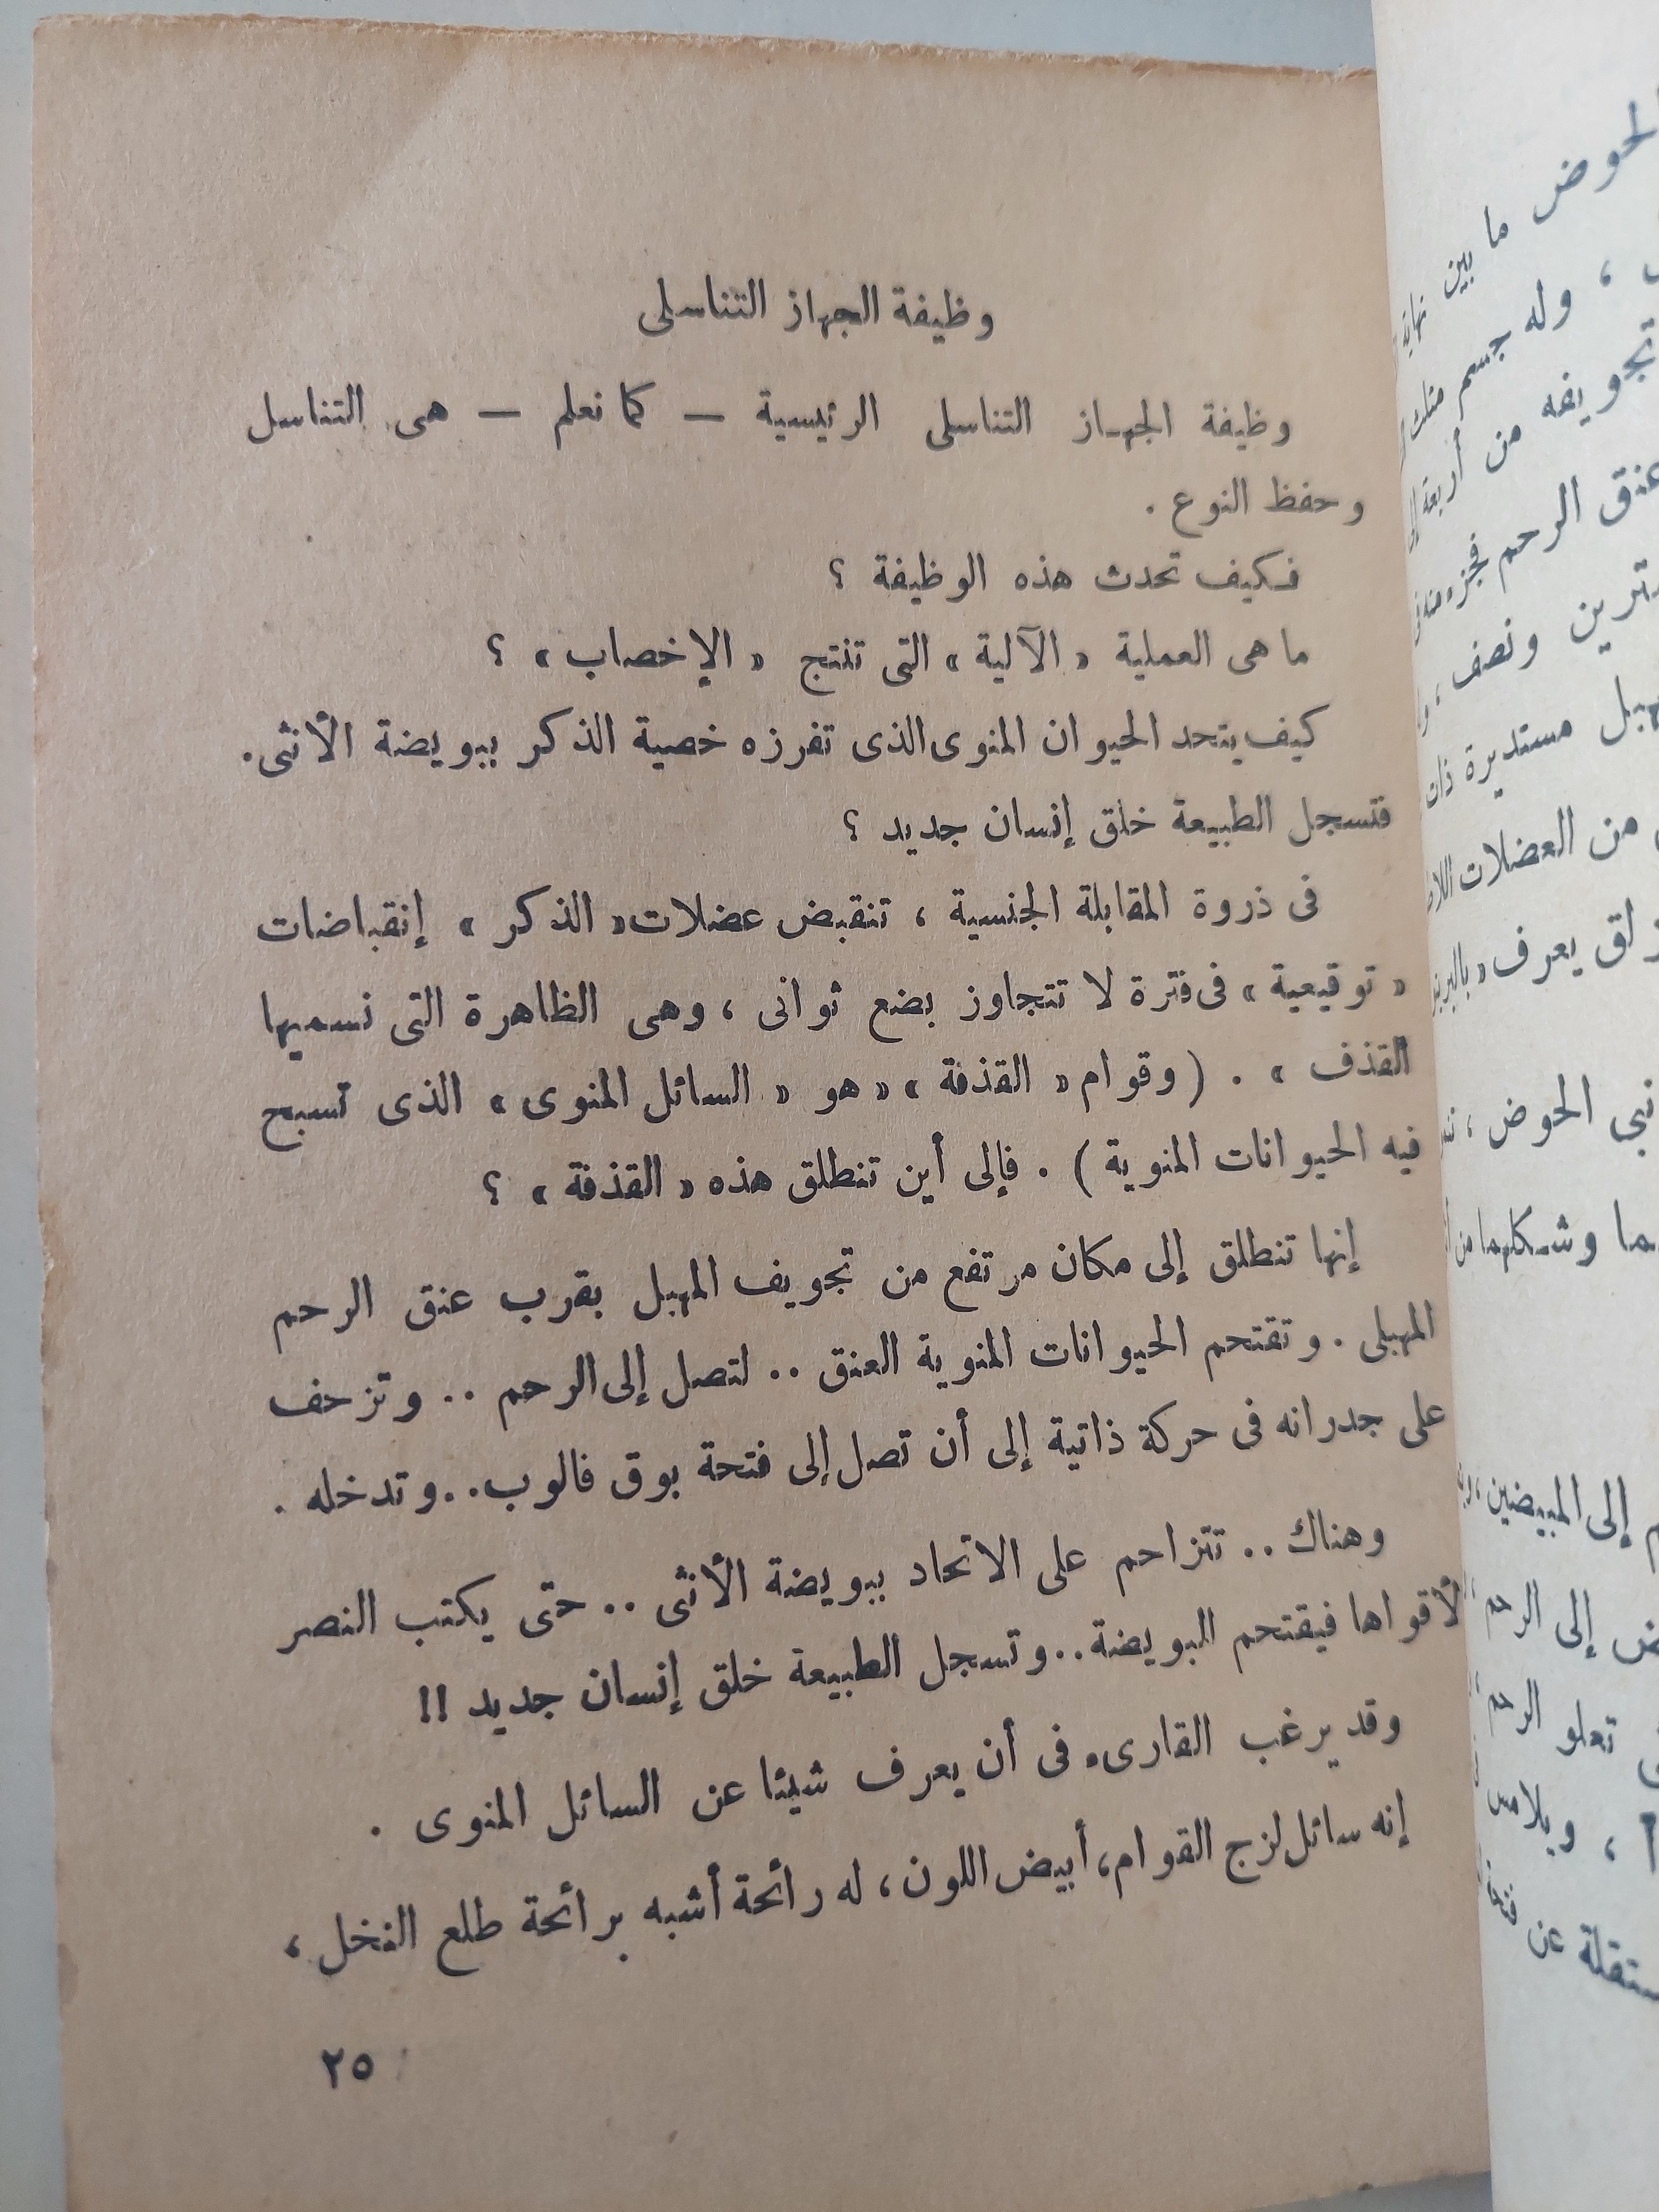 وظيفة الجهاز التناسلى
وظيفة الجهاز التناسلى الرئيسية — كما نعلم — هى التناسل
وحفظ النوع .
فكيف تحدث هذه الوظيفة ؟
ما هى العملية « الآلية » التى تنتج « الإخصاب » ؟
كيف يتحد الحيوان المنوى الذى تفرزه خصية الذكر ببويضة الأنثى .
فتسجل الطبيعة خلق إنسان جديد ؟
فى ذروة المقابلة الجنسية ، تنقبض عضلات « الذكر » إنقباضات
« توقيعية » فى فترة لا تتجاوز بضع ثوانى ، وهى الظاهرة التى نسميها
القذف » . ( وقوام « القذفة » « هو « السائل المنوى » الذى تسبح
فيه الحيوانات المنوية ) . فإلى أين تنطلق هذه « القذفة » ؟
إنها تنطلق إلى مكان مرتفع من تجويف المهبل بقرب عنق الرحم
المهبلى . وتقتحم الحيوانات المنوية العنق .. لتصل إلى الرحم .. وتزحف
على جدرانه فى حركة ذاتية إلى أن تصل إلى فتحة بوق فالوب .. وتدخله .
وهناك .. تتزاحم على الاتحاد ببويضة الأنثى .. حتى يكتب النصر
لأقواها فيقتحم البويضة .. وتسجل الطبيعة خلق إنسان جديد !!
وقد يرغب القارىء فى أن يعرف شيئا عن السائل المنوى .
إنه سائل لزج القوام ، أبيض اللون ، له رائحة أشبه برائحة طلع النخل ،
٢٥
الحوض ما بين
وله جسم
تجويفه من أربعة
عنق الرحم
ونصف
مستديرة ذات
من العضلات
يعرف
الحوض ،
وشكلهما من
إلى المبيضين
إلى الرحم
تعلو الرحم
ويلامس
عن فتحة